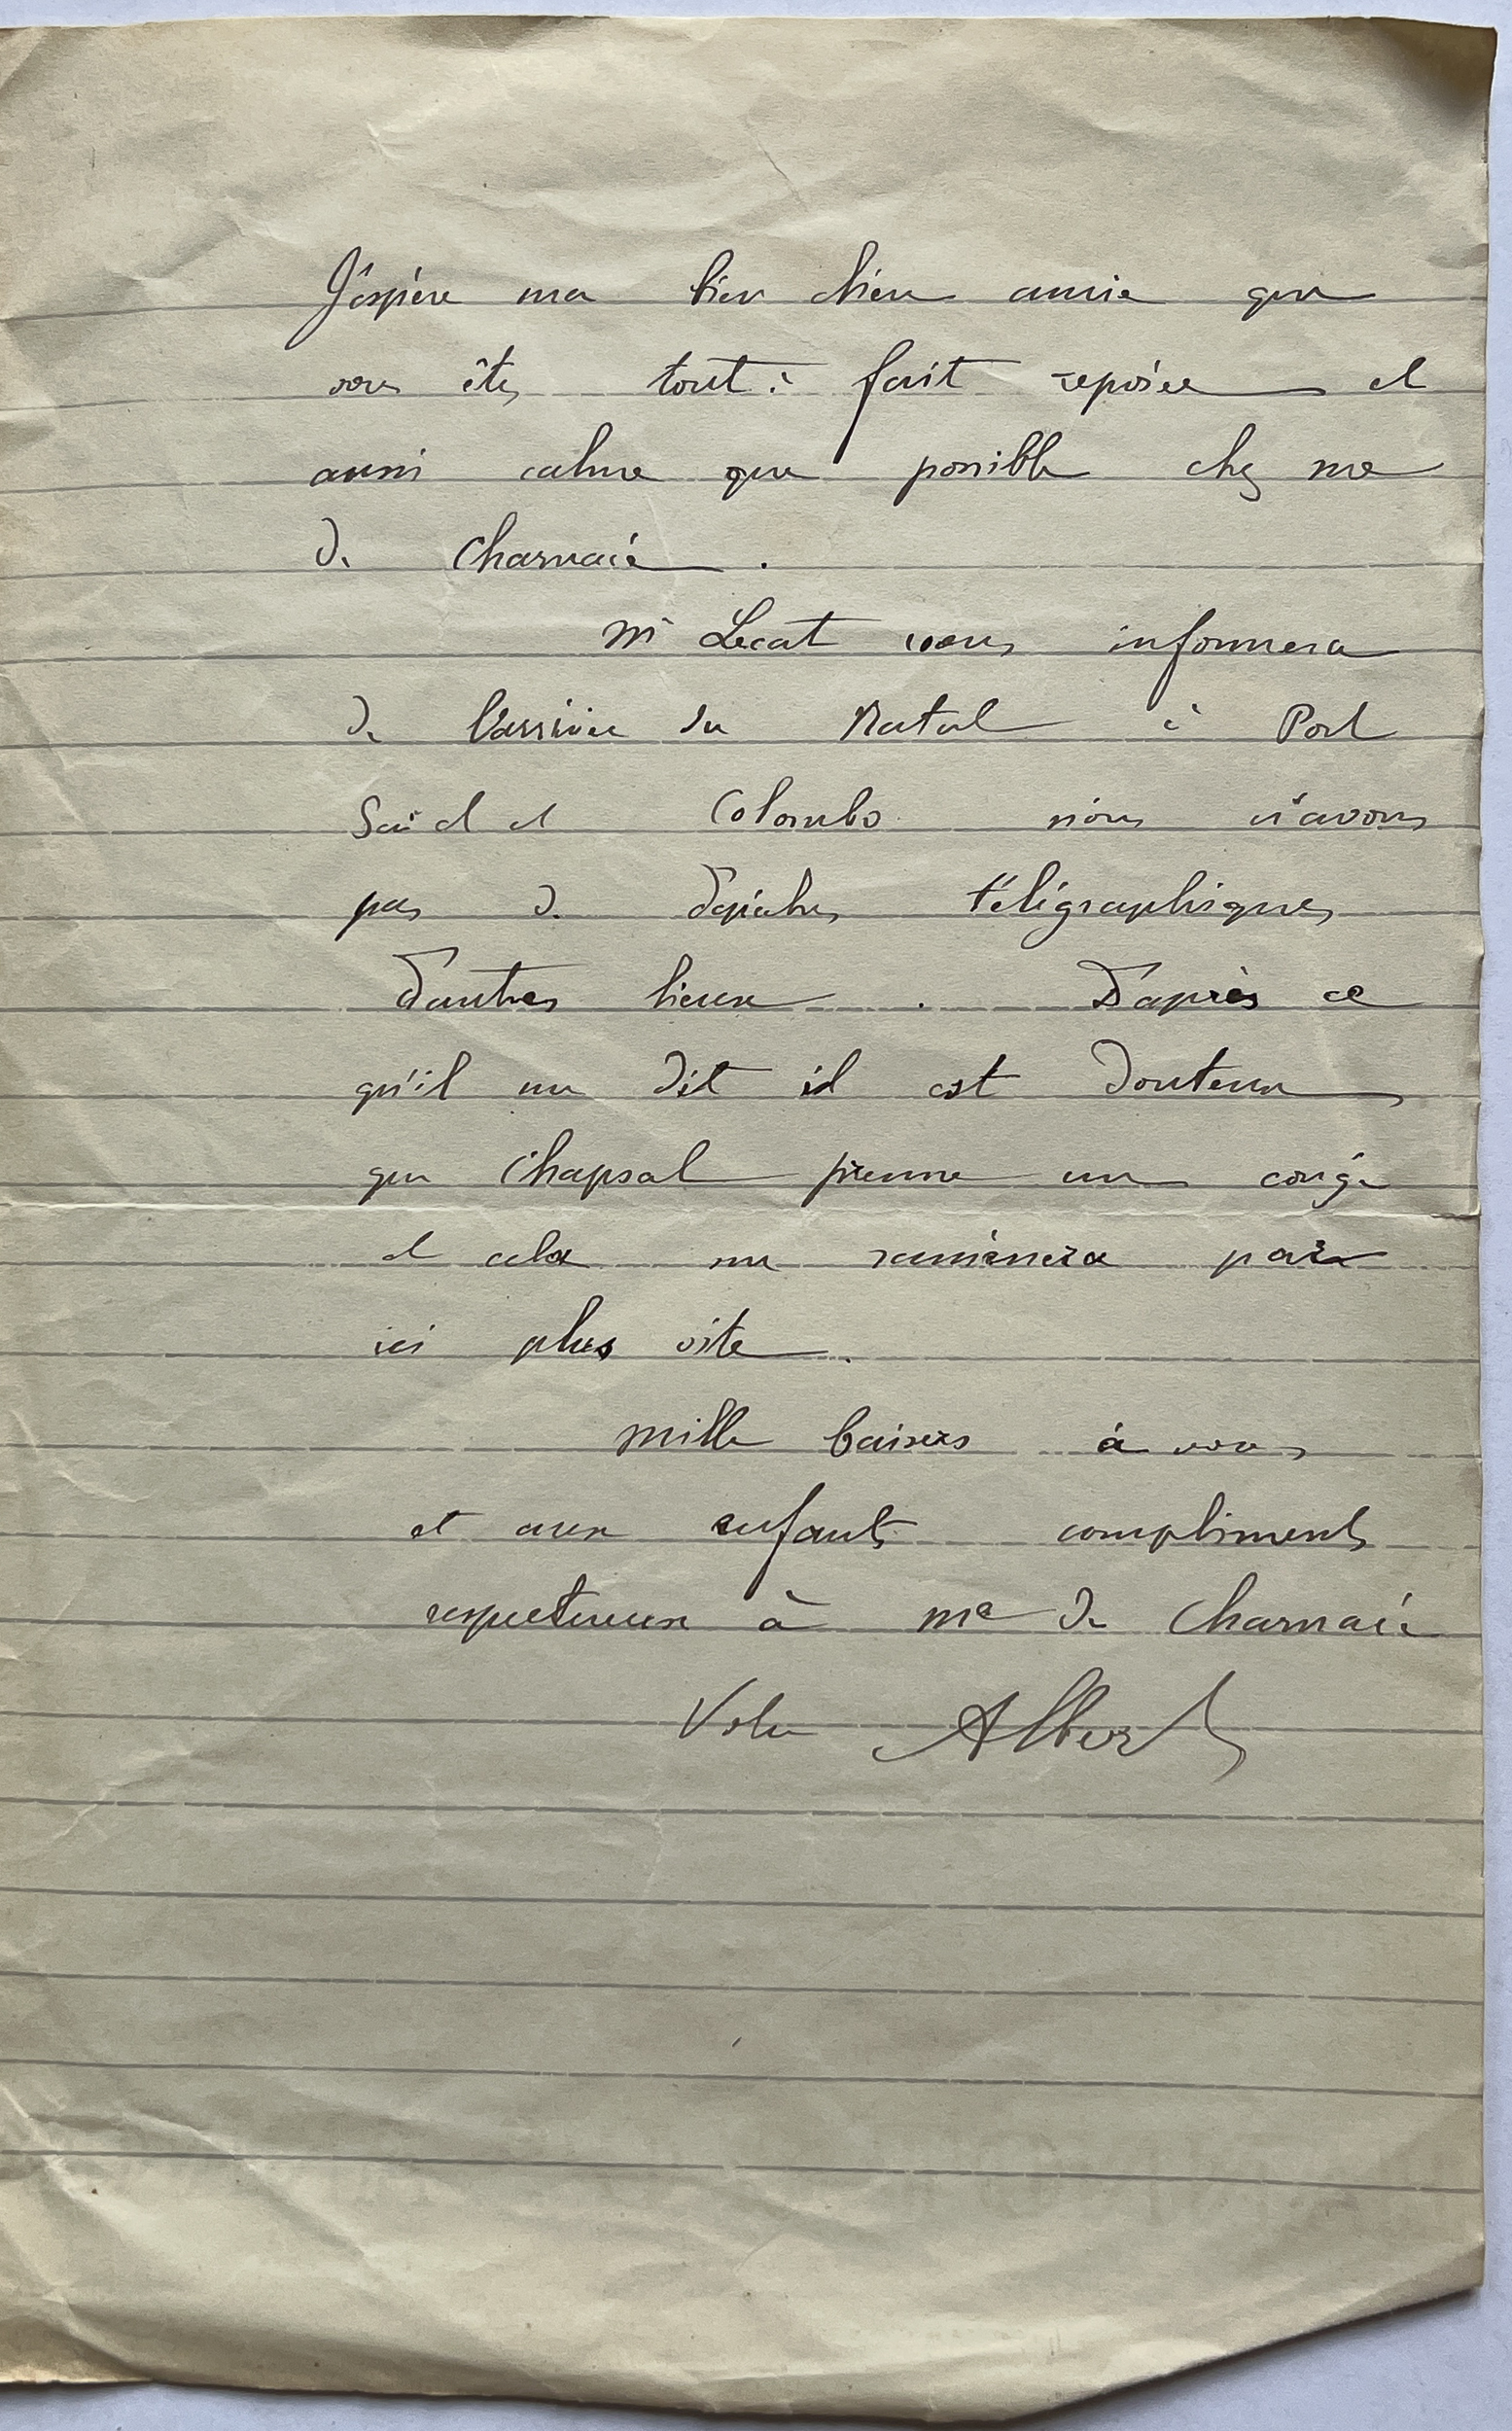 J'espère ma bien chère amie que
vous êtes tout à fait reposée et
aussi calme que possible chez me
de Charnacé.
Mr Lecat vous informera
de l'arrivée du Natal à Port
Saïd et Colombo nous n'avons
pas de dépêches télégraphiques
d'autres lieux. D'après ce
qu'il me dit il est douteux
que Chapsal prenne un congé
et cela me ramènera par
ici plus vite.
Mille baisers à vous
et aux enfants compliments
respectueux à Me de Charnacé
Votre Albert